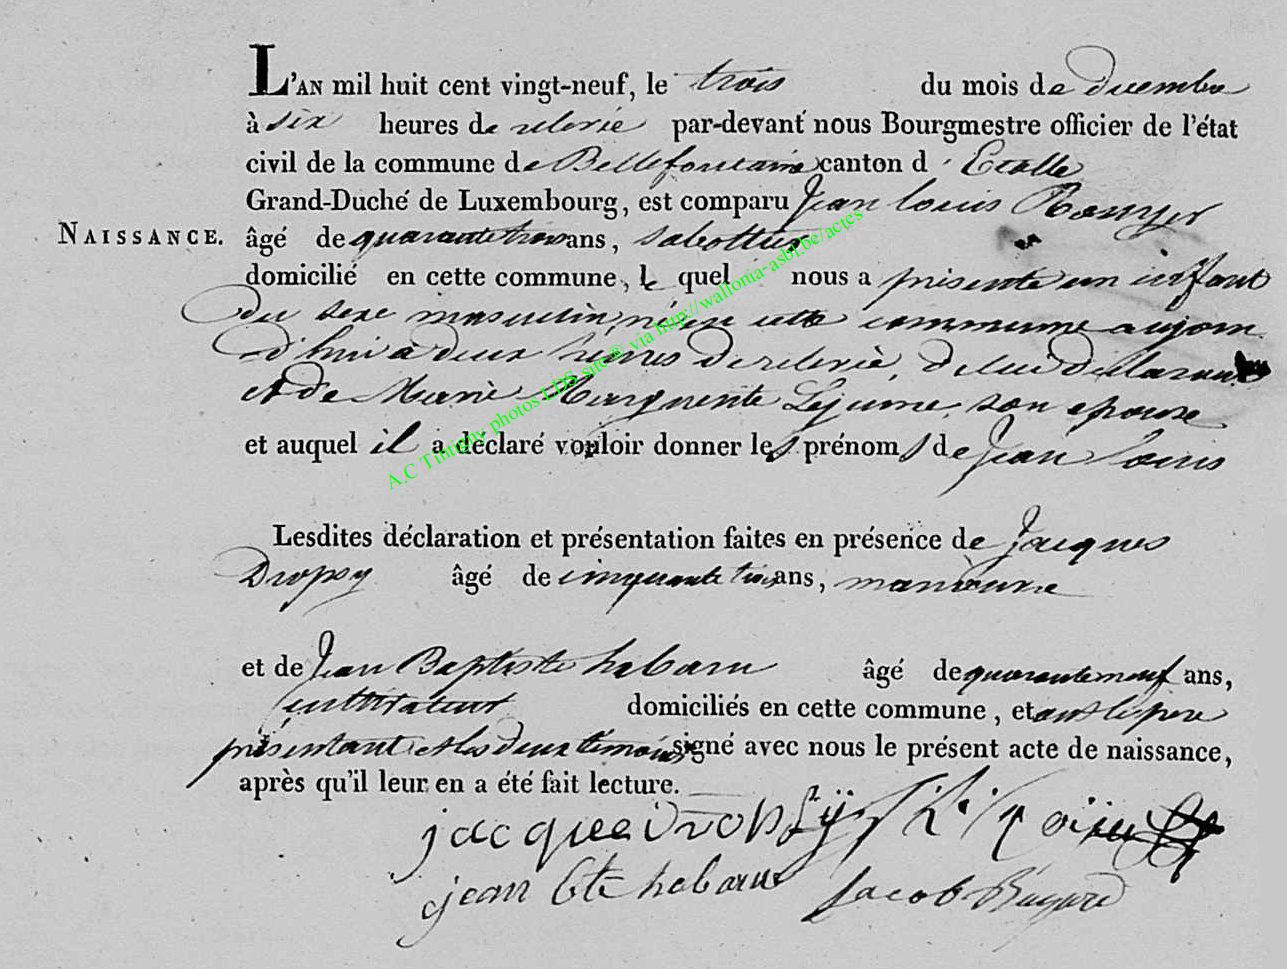 L'AN mil huit cent vingt-neuf, le trois du mois de decembre
à six heures de relevée par-devant nous Bourgmestre officier de l'état
civil de la commune de Bellefontaine canton d'Etalle
Grand-Duché de Luxembourg, est comparu Jean Louis
NAISSANCE. âgé de quarante trois ans, sabottier
domicilié en cette commune, le quel nous a présenté un enfant
du sexe masculin, né en cette commune aujour
d'hui à deux heures de relevée, de lui déclarant
et de Marie Marguerite Lejeune, son epouse
et auquel il a déclaré vouloir donner les prénoms de Jean Louis
Lesdites déclaration et présentation faites en présence de Jacques
Dropsy âgé de cinquante trois ans, manoeuvre
et de Jean Baptiste habaru âgé de quarante neuf ans,
cultivateur domiciliés en cette commune, et ont le pere
présentant et les deux témoins signé avec nous le présent acte de naissance,
après qu'il leur en a été fait lecture.
jacque dropsÿ
jean bte habaru Jacob
A.C Tintigny photos LDS site© via http://wallonia-asbl.be/actes